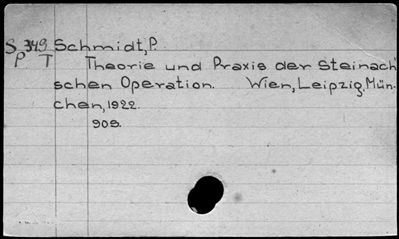 S 349 Schmidt, P.
P T Theorie und Praxis der Steinach'
schen Operation. Wien, Leipzig, Mün-
chen, 1922.
909.